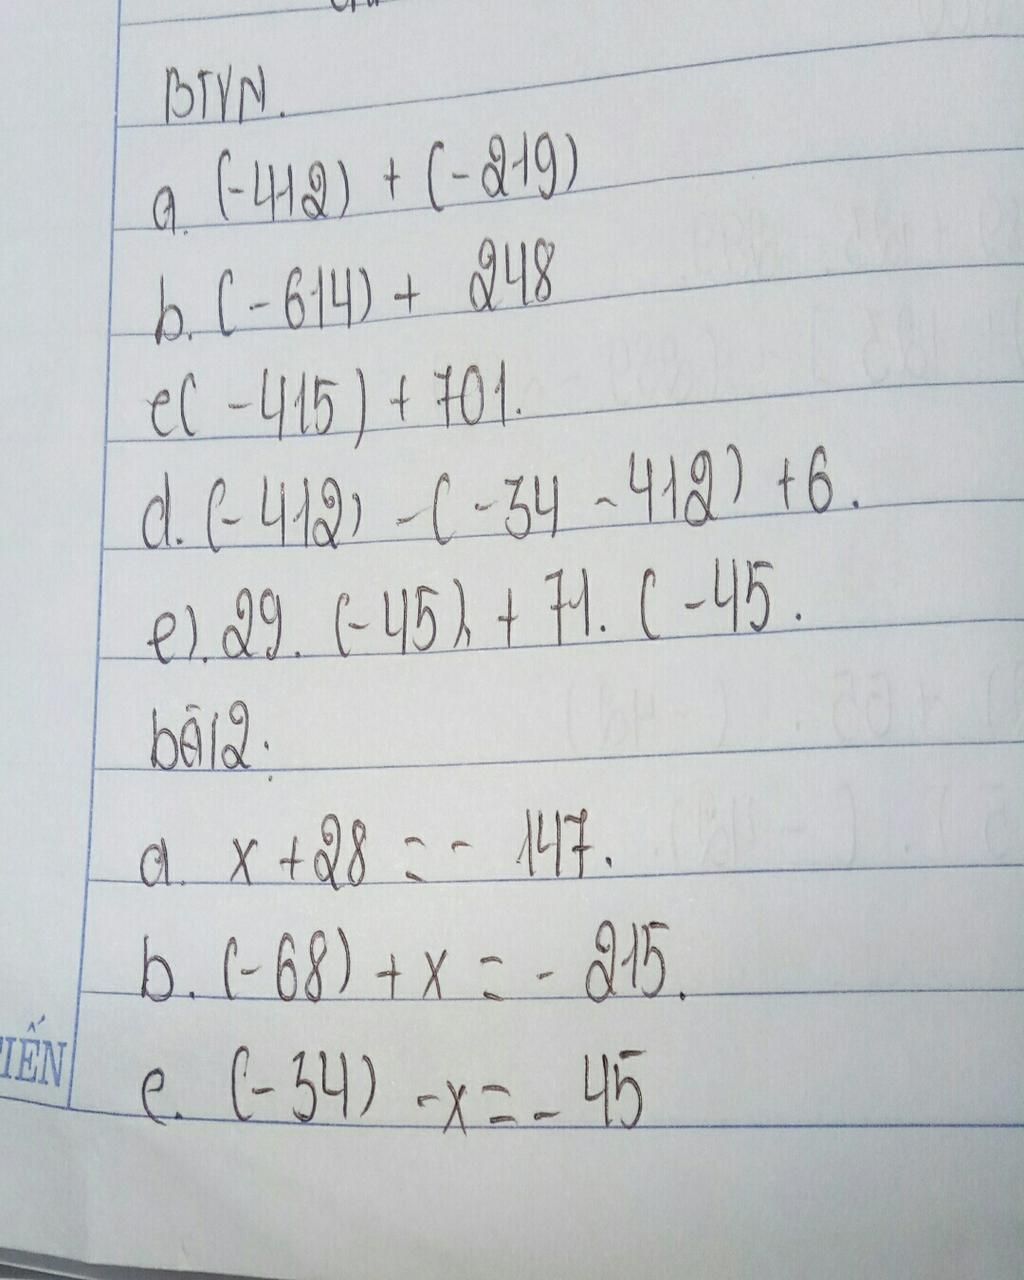 BTVN.
a. (-412) + (-219)
b. (-614) + 248
c( -415) + 701.
d. (-412) - ( -34 - 412) + 6.
e). 29. (-45) + 71. ( -45.
bài 2:
a. x + 28 = - 147.
b. (-68) + x = - 215.
c. (-34) - x = - 45
TIẾN